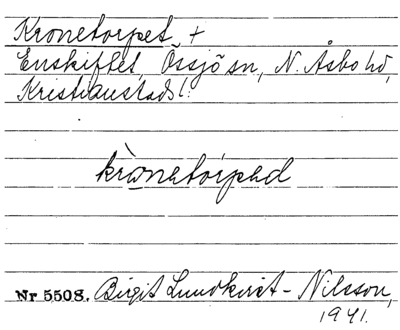 Kronetorpet +
Enskiftet Össjö sn, N. Åsbo hd,
Kristianstads l.
krònetòrpad
Nr 5508. Birgit Lundkvist-Nilsson,
1941.